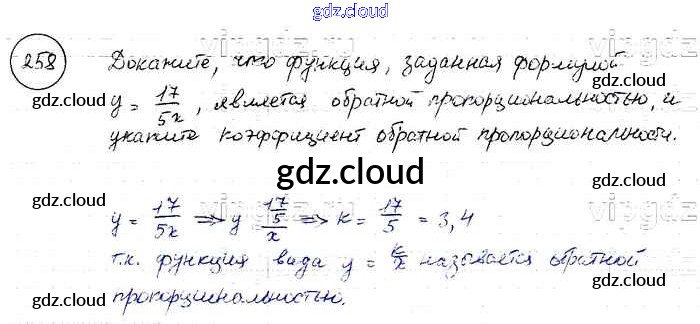 gdz.cloud
258 Докажите, что функция, заданная формулой
y = 17/5x, является обратной пропорциональностью, и
укажите коэффициент обратной пропорциональности.
gdz.cloud
y = 17/5x ⟹ y 17/5/x ⟹ k = 17/5 = 3,4
т.к. функция вида y = k/x называется обратной
пропорциональностью.
gdz.cloud